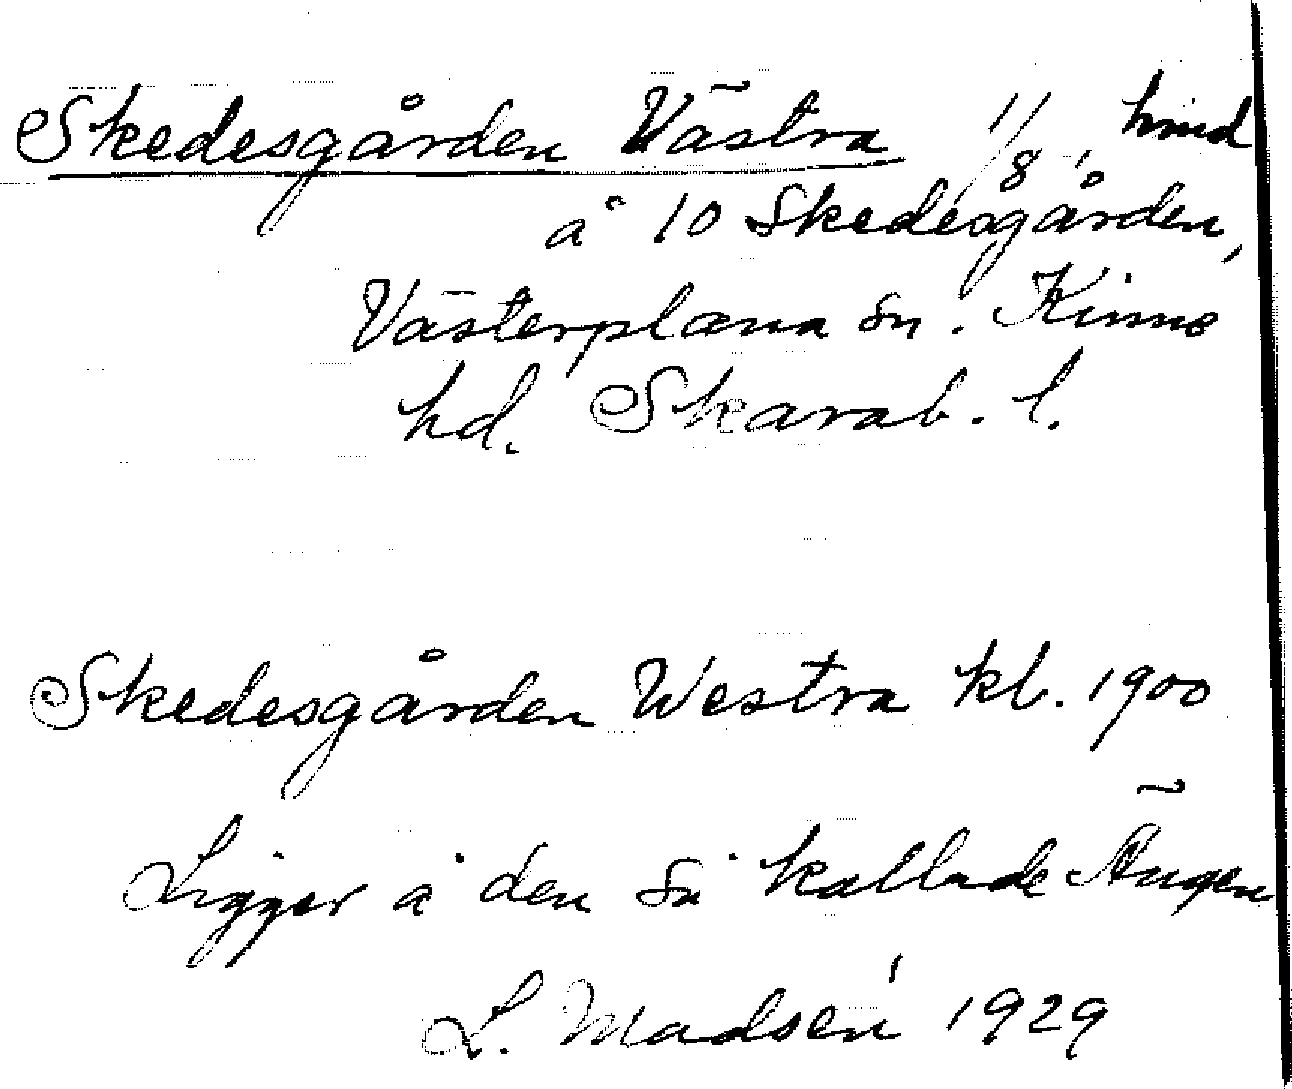 Skedesgården Västra 1/8 hmd
å 10 Skedesgården,
Västerplana sn. Kinne
hd. Skarab. l.
Skedesgården Westra kb. 1900
Ligger å den så kallade Ängen
L. Madsén 1929